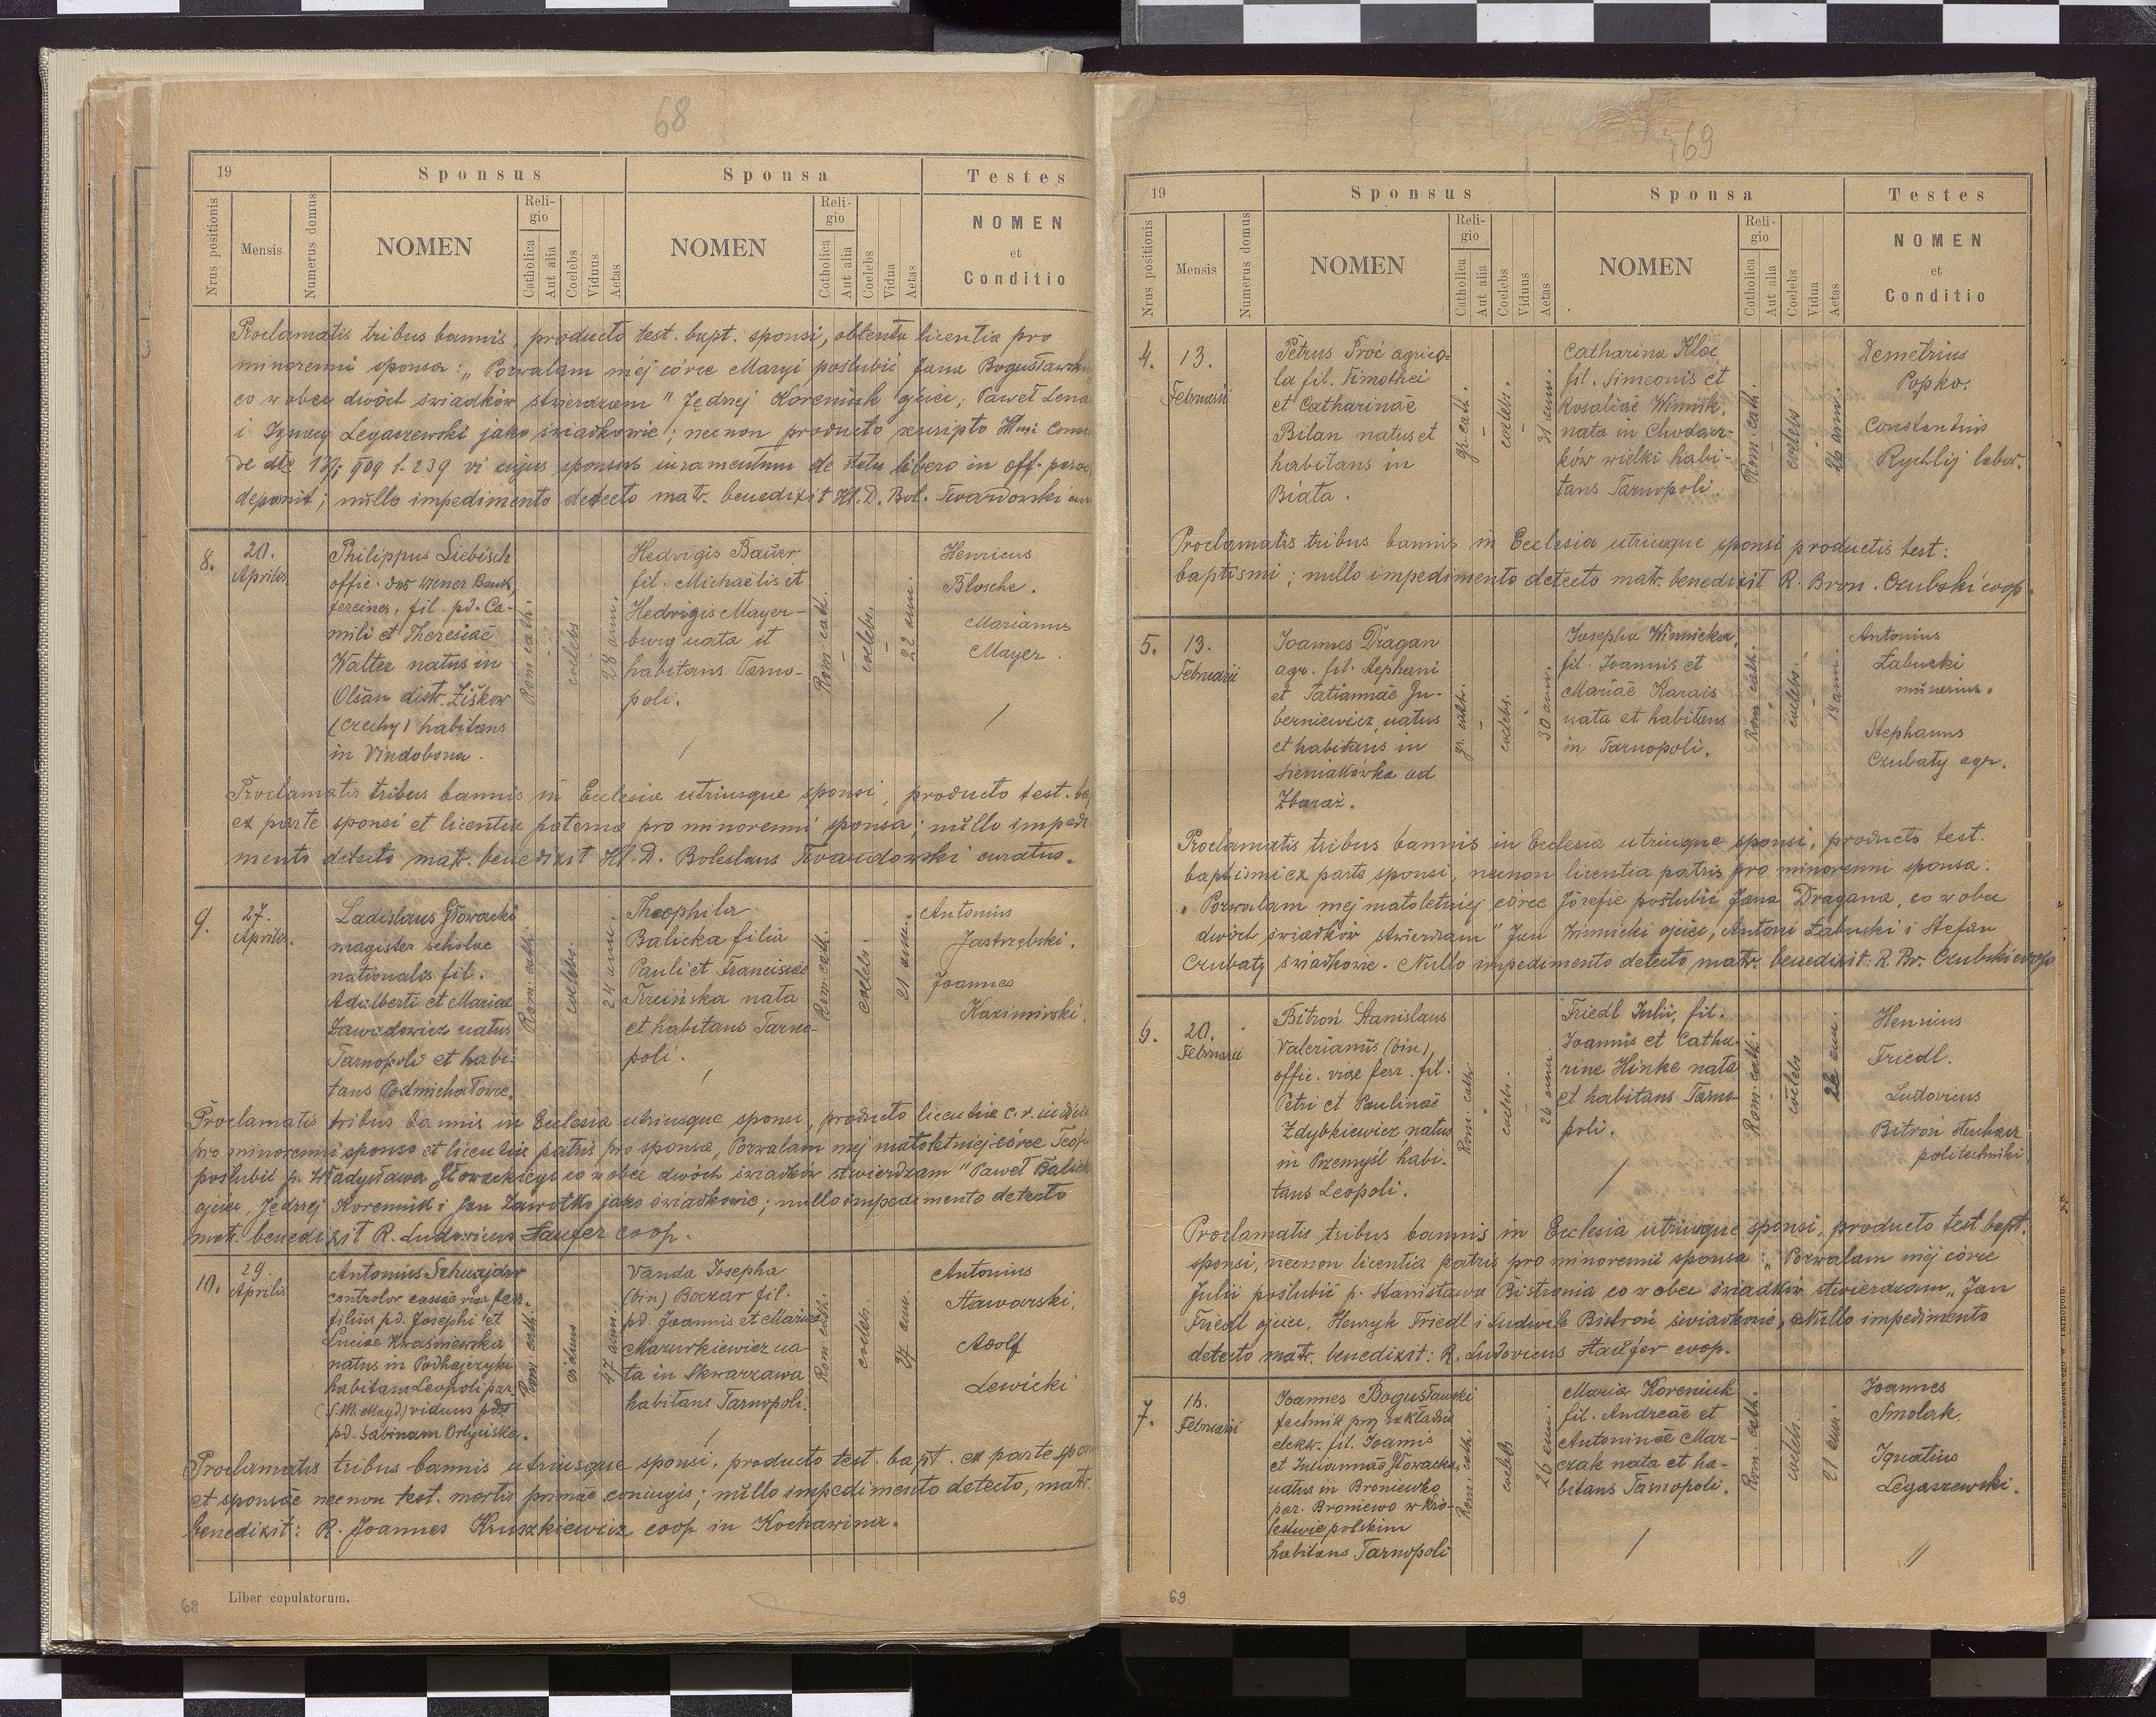 68
19
Sponsus
Sponsa
Testes
Nrus positionis
Mensis
Numerus domus
NOMEN
Religio
Catholica
Aut alia
Coelebs
Viduus
Aetas
NOMEN
Religio
Catholica
Aut alia
Coelebs
Vidua
Aetas
NOMEN
et
Conditio
Proclamatis tribus bannis, producto test. bapt. sponsi, obtenta licentia pro
minorenni sponsa: „Pozwalam mej córce Maryi poślubić Jana
co w obec dwóch świadków stwierdzam" Jędrzej Koreniuk ojciec, Paweł
i Ignacy Legaszewski jako świadkowie; necnon producto
de dto 909 l. 239 vi cujus sponsus iuramentum de statu libero in off.
deponit; nullo impedimento detecto matr. benedixit Hl. D. Bol. Twardowski
8.
20.
Aprilis
Philippus Liebisch
offic. des Wiener Bank
fereines, fil. pd. Ca-
mili et Theresiae
Walter natus in
Olšan distr. Žižkow
(Czechy) habitans
in Vindobona.
Rom. cath.
coelebs
28 ann.
Hedvigis Bauer
fil. Michaëlis et
Hedvigis Mayer-
burg nata et
habitans Tarno-
poli.
Rom. cath.
coelebs.
22 ann.
Henricus
Blosche.
Marianus
Mayer.
Proclamatis tribus bannis in Ecclesia utriusque sponsi, producto test.
ex parte sponsi et licentia paterna pro minorenni sponsa; nullo impedi
mento detecto matr. benedixit Hl. D. Boleslaus Twardowski curatus.
9.
27.
Aprilis.
Ladislaus Głowacki
magister scholae
nationalis fil.
Adalberti et Mariae
Zawadowicz natus
Tarnopoli et habi-
tans Podmichałowce.
Rom. cath.
coelebs.
24 ann.
Theophila
Balicka filia
Pauli et Franciscae
nata
et habitans Tarno-
poli.
Rom. cath.
coelebs.
21 ann.
Antonius
Jastrzębski.
Joannes
Kazimirski.
Proclamatis tribus bannis in Ecclesia utriusque sponsi, producto licentia c. r.
pro minorenni sponso et licentia patris pro sponsa, „Pozwalam mej małoletniej córce
poślubić p. Władysława Głowackiego co w obec dwóch świadków stwierdzam" Paweł
ojciec, Jędrzej Koreniuk i Jan Zawołko jako świadkowie; nullo impedimento detecto
matr. benedixit R. Ludovicus Haufer coop.
10.
29
Aprilis
Antonius Schnajder
controlor cassae viae ferr.
filius pd. Josephi et
Luciae Kwaśniewska
natus in Podhajczyki
habitans Leopoli par.
(S. M. Magd.) viduus post
pd. Sabinam
Rom. cath.
viduus
47 ann.
Vanda Josepha
(bin) Boczar fil.
pd. Joannis et Mariae
Mazurkiewicz na-
ta in Skwarzawa
habitans Tarnopoli.
Rom. cath.
coelebs.
37 ann.
Antonius
Stawarski.
Adolf
Lewicki
Proclamatis tribus bannis utriusque sponsi, producto test. bapt. ex parte
et sponsae necnon test. mortis primae coniugis; nullo impedimento detecto, matr.
benedixit: R. Joannes Kruszkiewicz coop in Kochawina.
68
Liber copulatorum.
69
19
Sponsus
Sponsa
Testes
Nrus positionis
Mensis
Numerus domus
NOMEN
Religio
Catholica
Aut alia
Coelebs
Viduus
Aetas
NOMEN
Religio
Catholica
Aut alia
Coelebs
Vidua
Aetas
NOMEN
et
Conditio
4.
13.
Februarii
Petrus Proć agrico-
la fil. Timothei
et Catharinae
Bilan natus et
habitans in
Biała.
gr. cath.
coelebs.
31 ann.
Catharina Kłoc
fil. Simeonis et
Rosaliae Winnik.
nata in Chodacz-
ków wielki habi-
tans Tarnopoli.
Rom. cath.
coelebs
26 ann.
Demetrius
Popko.
Constantius
Rychlij labor.
Proclamatis tribus bannis in Ecclesia utriusque sponsi productis test:
baptismi; nullo impedimento detecto matr. benedixit R. Bron. Czubski coop.
5.
13.
Februarii
Joannes Dragan
agr. fil. Stephani
et Tatiannae Gu-
berniewicz natus
et habitans in
Sieniakówka ad
Zbaraż.
gr. cath.
coelebs.
30 ann.
Josepha Winnicka
fil. Joannis et
Mariae Karais
nata et habitans
in Tarnopoli.
Rom. cath.
coelebs.
18 ann.
Antonius
Łabucki
Stephanus
Czubaty agr.
Proclamatis tribus bannis in Ecclesia utriusque sponsi, producto test.
baptismi ex parte sponsi, necnon licentia patris pro minorenni sponsa:
„Pozwalam mej małoletniej córce Józefie poślubić Jana Dragana, co w obec
dwóch świadków stwierdzam" Jan Winnicki ojciec, Antoni Łabucki i Stefan
Czubaty świadkowie. Nullo impedimento detecto matr. benedixit: R. Br. Czubski coop
6.
20.
Februarii
Bitroń Stanislaus
Valerianus (bin)
offic. viae ferr. fil.
Petri et Paulinae
Zdybkiewicz natus
in Przemyśl habi-
tans Leopoli.
Rom. cath.
coelebs.
26 ann.
Friedl Julii, fil.
Joannis et Catha-
rine Hinke nata
et habitans Tarno
poli.
Rom. cath.
coelebs
22 ann.
Henricus
Friedl.
Ludovicus
Bitroń słuchacz
politechniki
Proclamatis tribus bannis in Ecclesia utriusque sponsi, producto test. bapt.
sponsi, necnon licentia patris pro minorenni sponsa: „Pozwalam mej córce
Julii poślubić p. Stanisława Bistronia co w obec świadków stwierdzam„ Jan
Friedl ojciec, Henryk Friedl i Ludwik Bistroń świadkowie, Nullo impedimento
detecto matr. benedixit: R. Ludovicus Haufer coop.
7.
16.
Februarii
Joannes Bogusławski
technik przy zakładzie
elektr. fil. Joannis
et Juliannae Głowacka,
natus in Broniewko
par. Broniewo w Kró-
lestwie polskim
habitans Tarnopoli
Rom. cath.
coelebs
26 ann.
Maria Koreniuk
fil. Andreae et
Antoninae Mar-
czak nata et ha-
bitans Tarnopoli.
Rom. cath.
coelebs.
21 ann.
Joannes
Smolak.
Ignatius
Legaszewski.
69